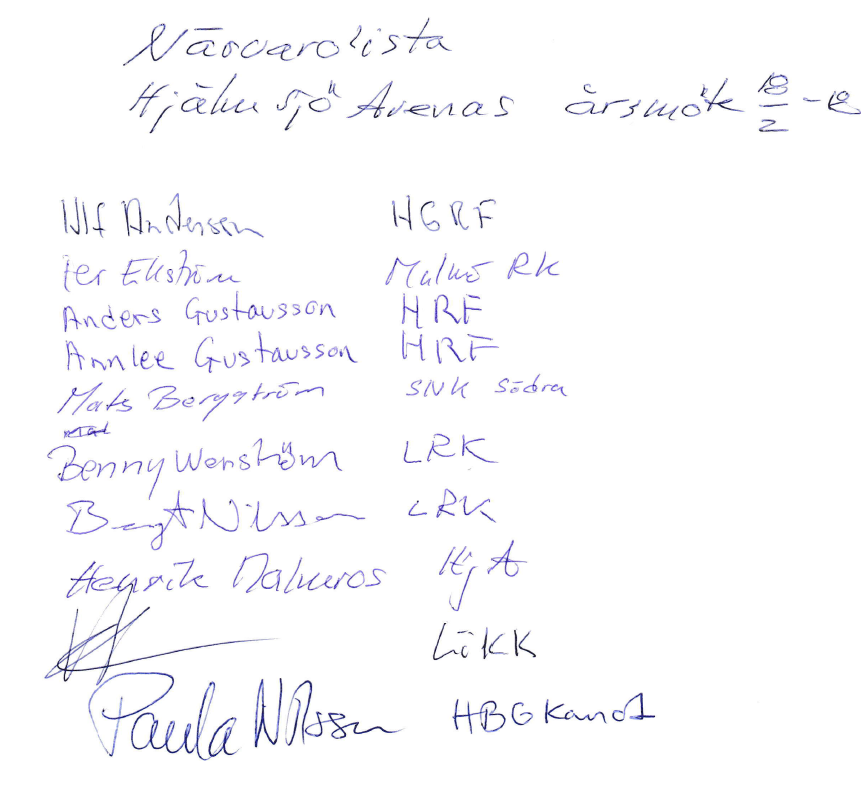 Närvarolista
Hjälmsjö Arenas årsmöte 18/2 - 18
Ulf Andersen HGRF
Per Ekström Malmö RK
Anders Gustavsson HRF
Annlee Gustavsson HRF
Mats Bergström SNK Södra
Benny Wenström LRK
Bengt Nilsson LRK
Henrik Malmros HjA
LöKK
Paula Nilsson HBG Kanot